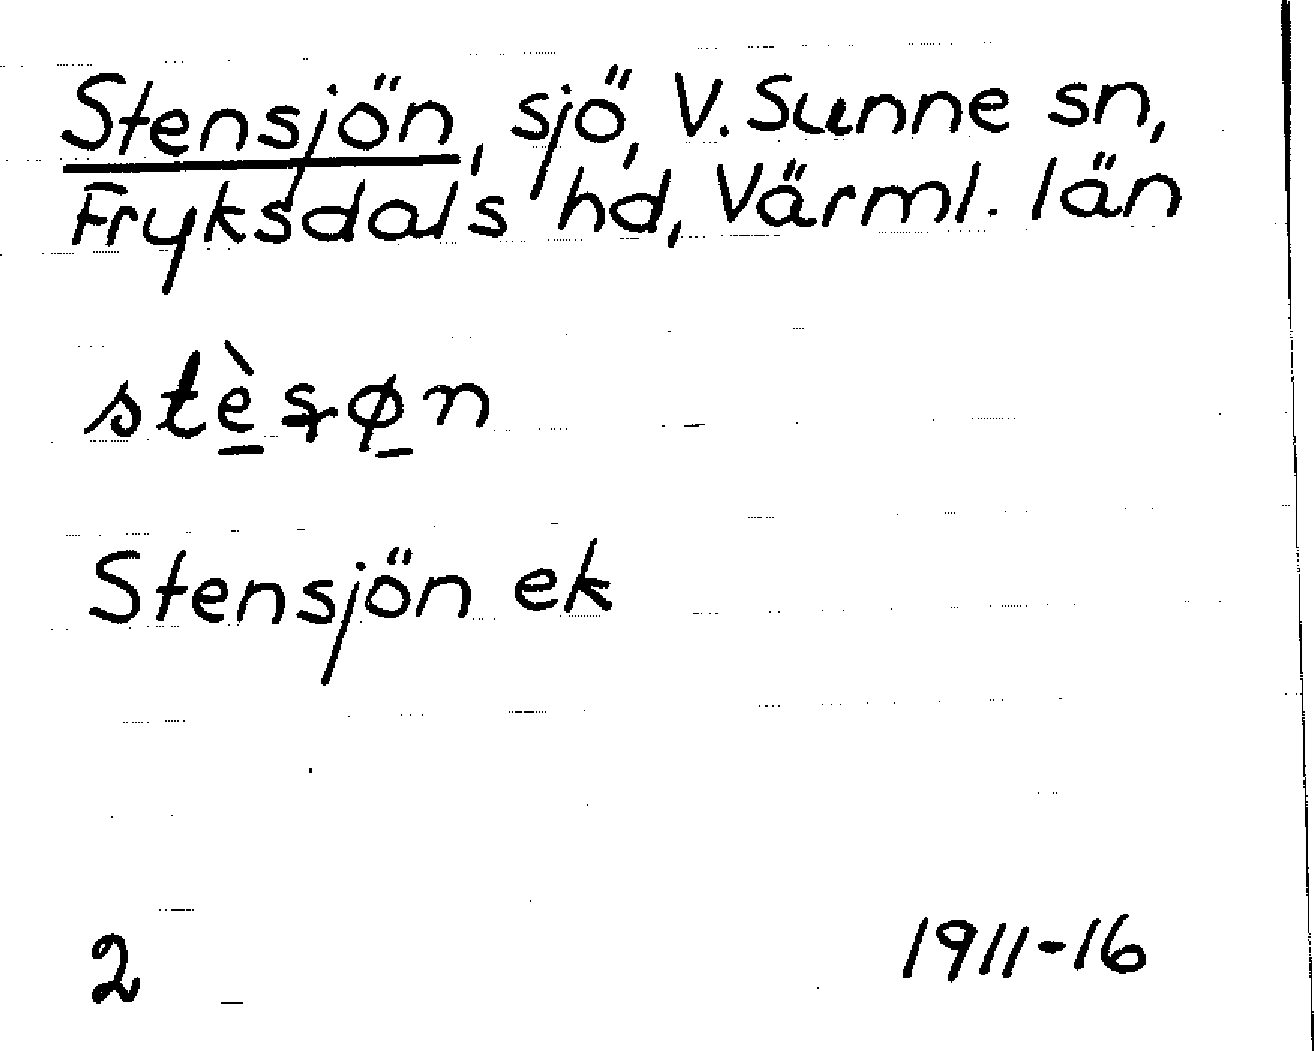 Stensjön, sjö, V. Sunne sn,
Fryksdals hd, Värml. län
stè̱ʂø̱n
Stensjön ek
2
1911-16